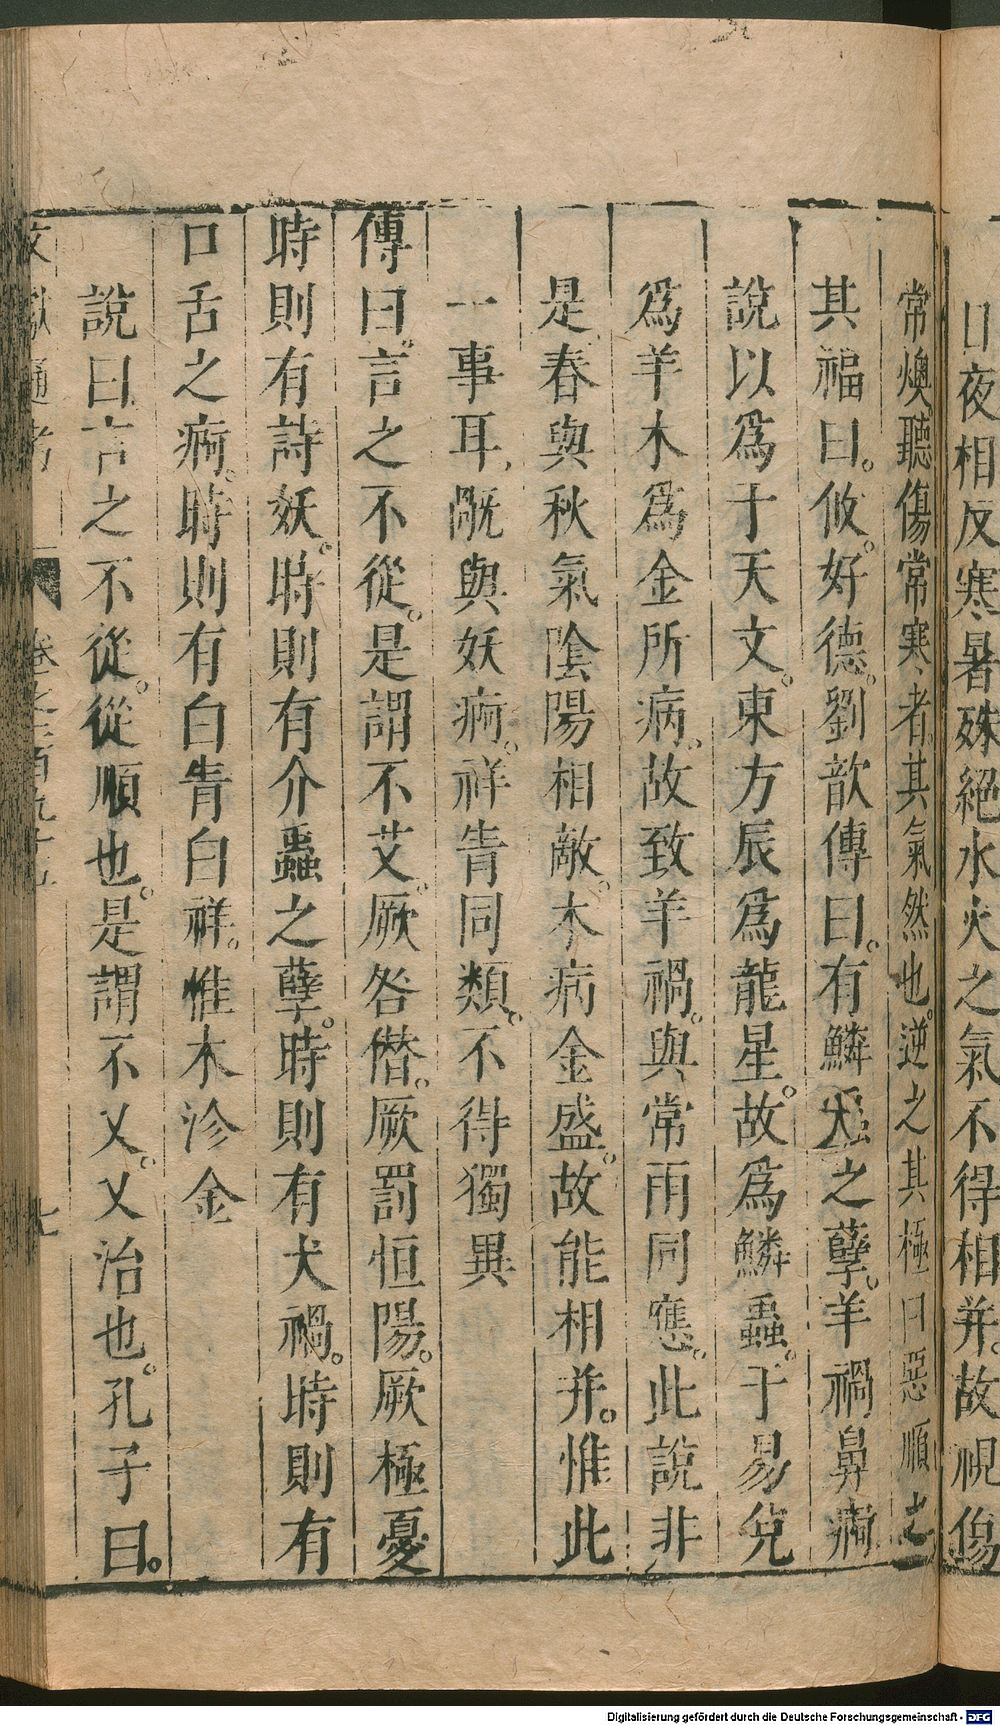 日夜相反寒暑殊絕水火之氣不得相并。故視傷
常燠。聽傷常寒者。其氣然也。逆之其極曰惡順之
其福曰。攸好德。劉歆傳曰。有鱗蟲之孽。羊禍鼻痾
說以為于天文。東方辰為龍星。故為鱗蟲。于易兌
為羊木為金所病。故致羊禍。與常雨同應。此說非
是春與秋氣陰陽相敵。木病金盛。故能相并。惟此
一事耳。旤與妖痾。祥眚同類。不得獨異
傳曰。言之不從。是謂不艾。厥咎僭。厥罰恒陽。厥極憂
時則有詩妖。時則有介蟲之孽。時則有犬禍。時則有
口舌之痾。時則有白眚白祥。惟木沴金
說曰言之不從。從順也。是謂不乂。乂治也。孔子曰。
文獻通考 卷之三百九十五 七
Digitalisierung gefördert durch die Deutsche Forschungsgemeinschaft - DFG